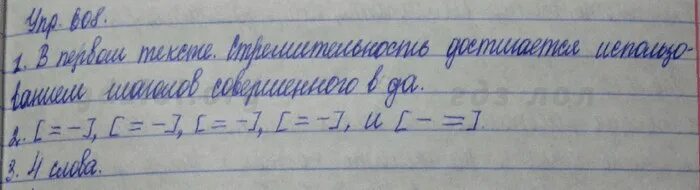 Упр 608.
1. В первом тексте. Стремительность достигается использо-
ванием глаголов совершенного вида.
2. [= -], [= -], [= -], [= -], и [- =].
3. 4 слова.